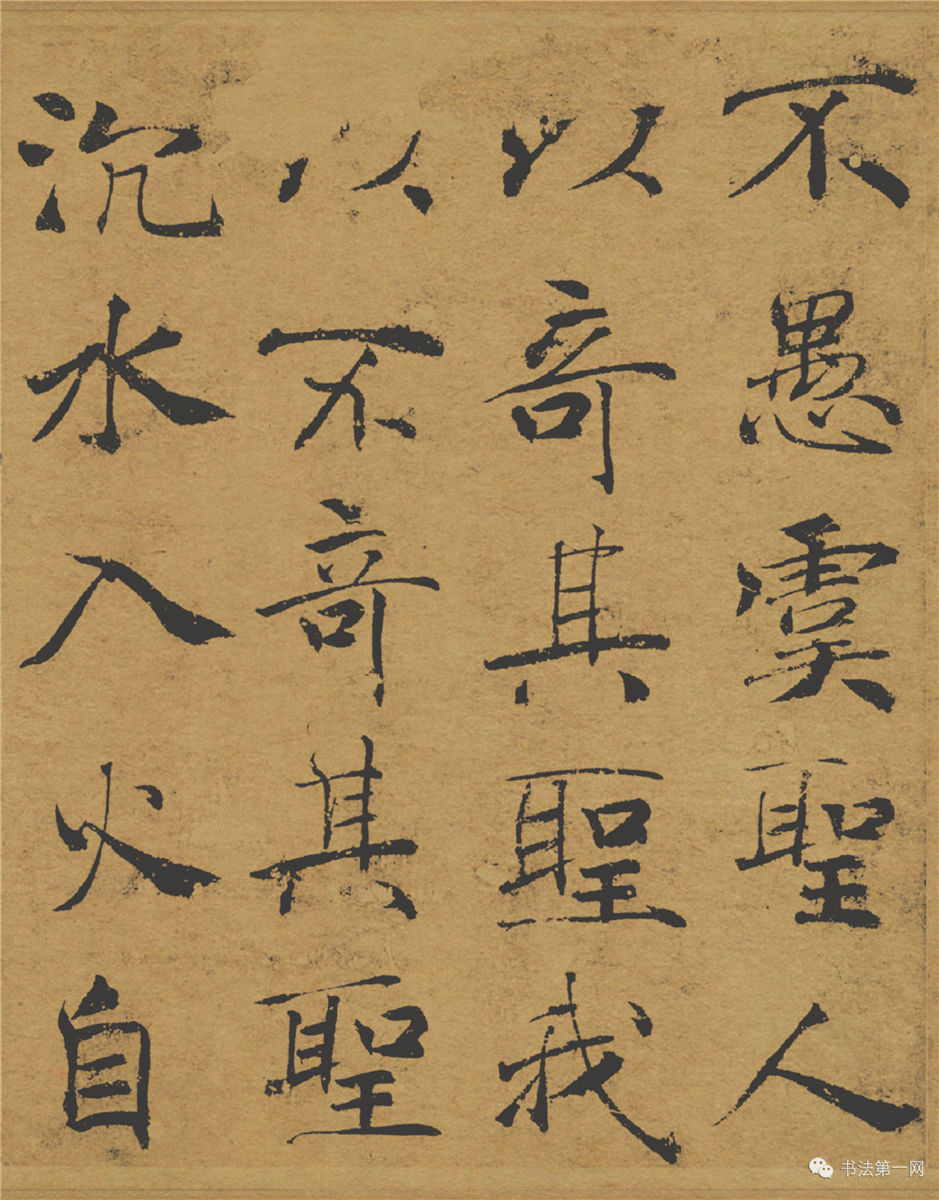 不愚虞聖人
以奇其聖我
以不奇其聖
沉水入火自
书法第一网